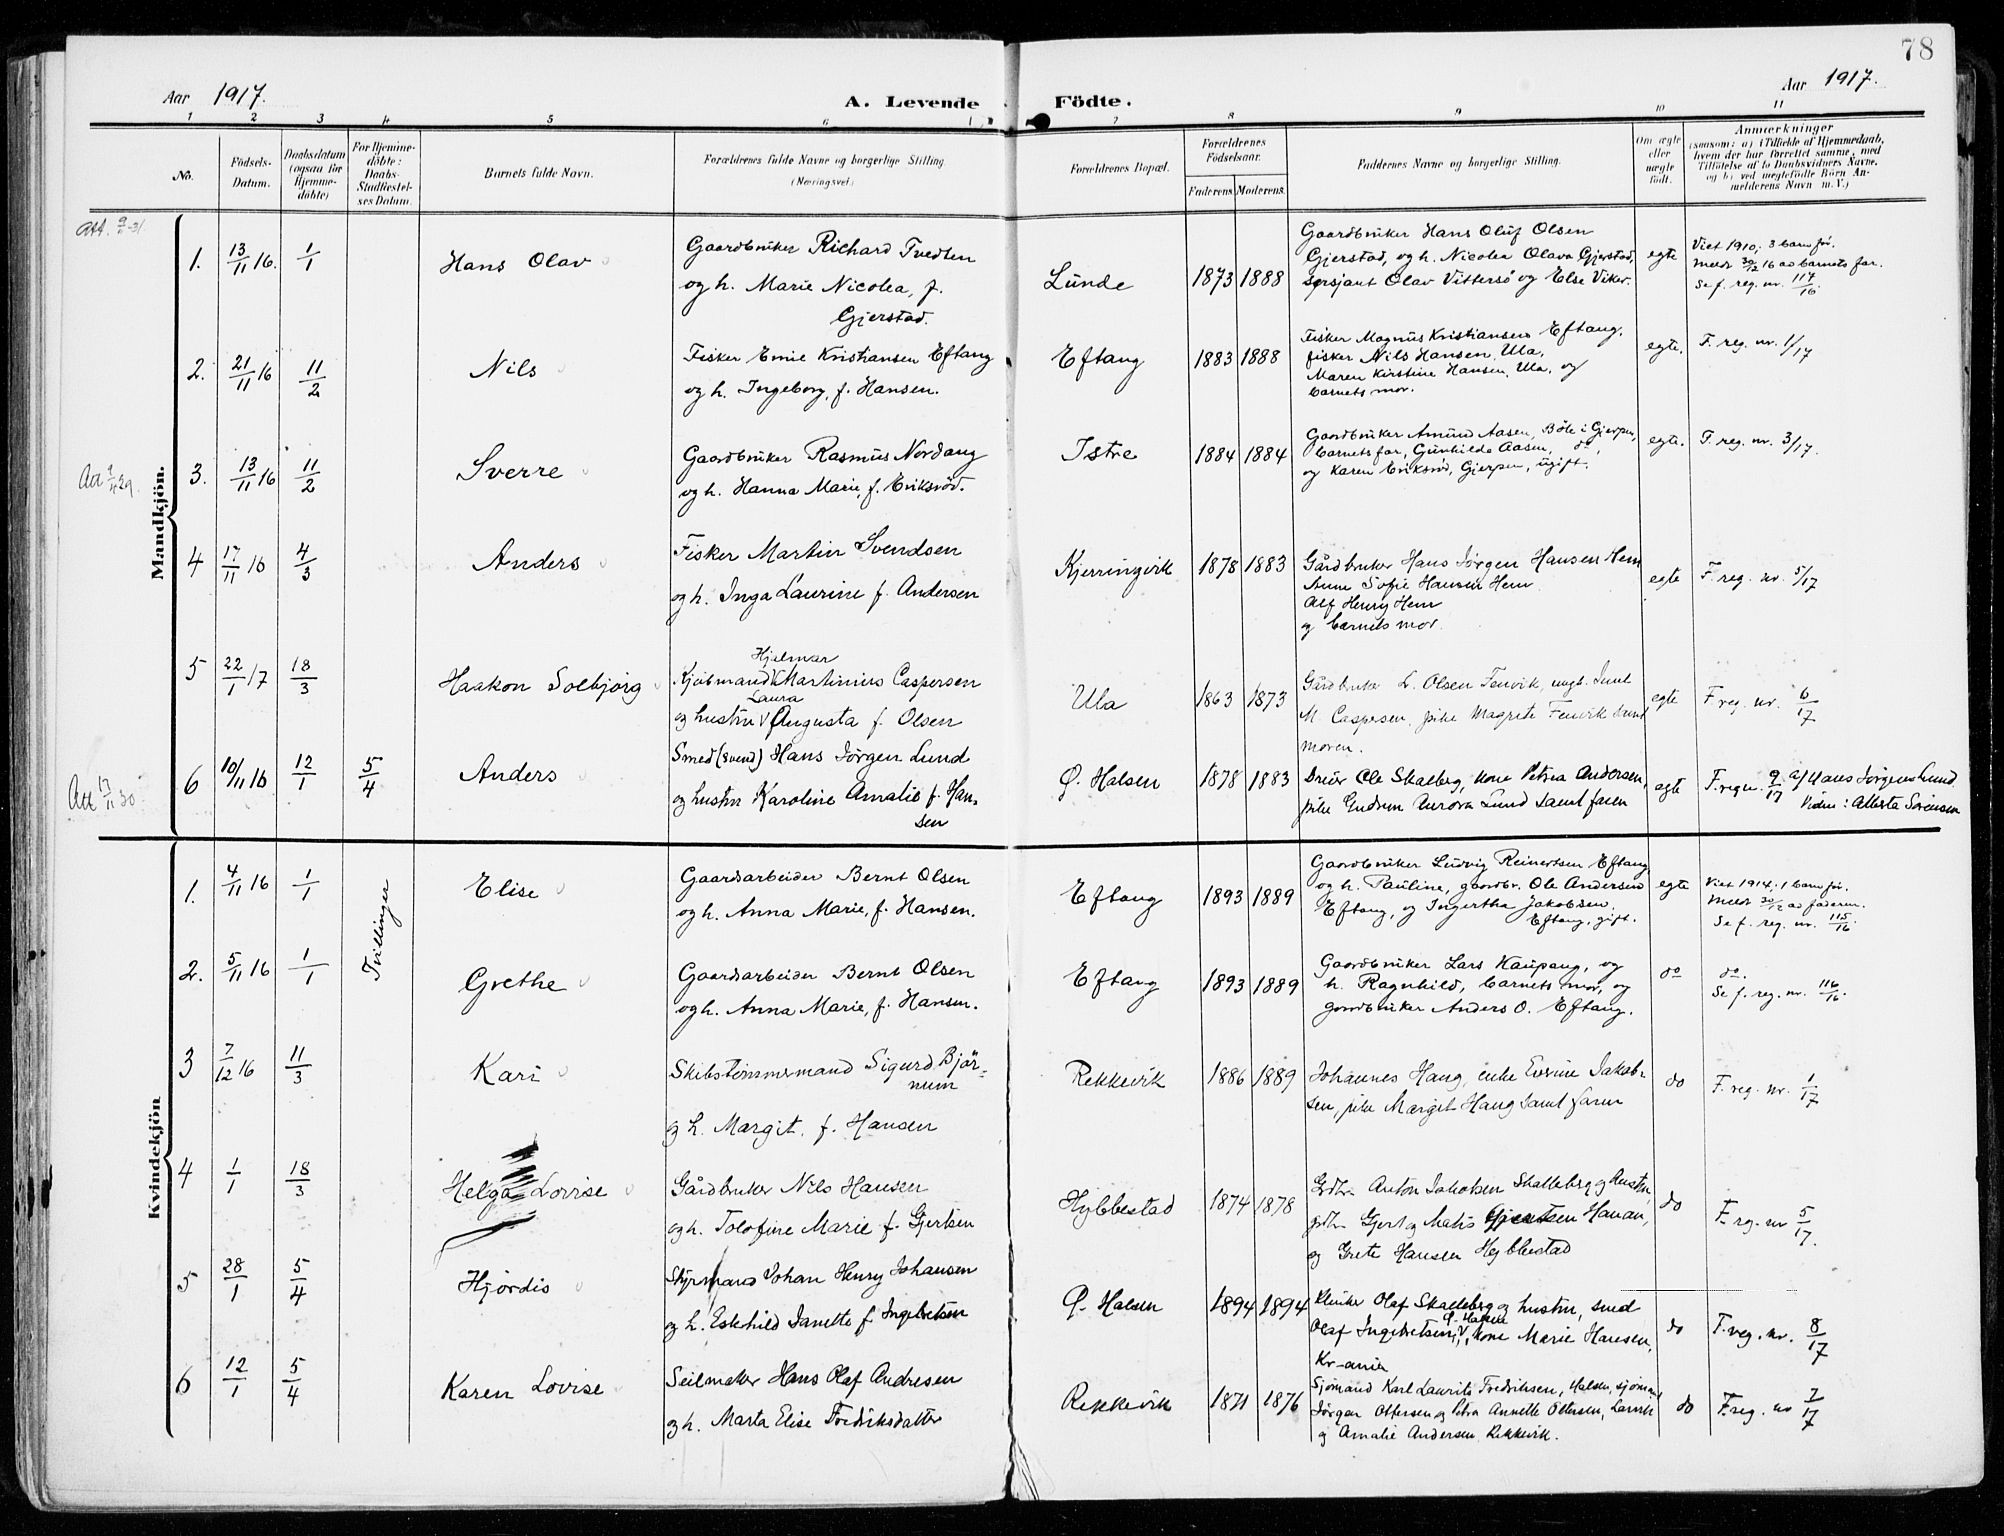 78
Aar 1917.
A. Levende Födte.
Aar 1917.
1 2 3 4 5 6 7 8 9 10 11
No.
Födsels-
Datum.
Daabsdatum
(ogsaa for
Hjemme-
döbte)
For Hjemme-
döbte:
Daabs-
Stadfæstel-
ses Datum.
Barnets fulde Navn.
Forældrenes fulde Navne og borgerlige Stilling.
(Næringsvei.)
Forældrenes Bopæl.
Forældrenes
Födselsaar.
Faderens. Moderens.
Faddernes Navne og borgerlige Stilling.
Om ægte
eller
uægte
født.
Anmærkninger
(saasom: a) i Tilfælde af Hjemmedaab,
hvem der har forrettet samme, med
Tilføielse af to Daabsvidners Navne,
og b) ved uægtefödte Börn An-
melderens Navn m. V.)
Mandkjön.
Att. 9/2-31
1. 13/11 16. 1/1 Hans Olav
Gaardbruker Richard Tvedten
og h. Marie Nicolea, f.
Gjerstad.
Lunde 1873 1888
Gaardbruker Hans Oluf Olsen
Gjerstad, og h. Nicolea Olava Gjerstad,
sersjant Olav Vittersø og Else Viker.
egte
Viet 1910; 3 barn før.
Meldt 30/12 16 av barnets far.
Se f. reg. nr. 117/16.
2. 21/11 16 11/2 Nils
Fisker Emil Kristiansen Eftang
og h. Ingeborg, f. Hansen.
Eftang 1883 1888
Fisker Magnus Kristiansen Eftang,
fisker Nils Hansen, Ula,
Maren Kirstine Hansen, Ula, og
barnets mor.
egte.
F. reg. nr. 1/17
Att 9/4 29.
3. 13/11 16 11/2 Sverre
Gaardbruker Rasmus Nordang
og h. Hanna Marie, f. Eriksrød.
Istre 1884 1884
Gaardbruker Amund Aasen, Bøle i Gjerpen,
barnets far, Gunhilde Aasen, do,
og Karen Eriksrød, Gjerpen, ugift.
egte.
F. reg. nr. 3/17.
4 17/11 16 4/3 Anders
Fisker Martin Svendsen
og h. Inga Laurine f. Andersen
Kjerringvik 1878 1883
Gårdbruker Hans Jørgen Hansen Hem
Anne Sofie Hansen Hem
Alf Henry Hem
og barnets mor.
egte
F. reg. nr. 5/17
5 22/1 17 18/3 Haakon Solbjørg
Hjalmar
Kjøbmand Martinius Caspersen
Laura
og hustru Augusta f. Olsen
Ula 1863 1873
Gårdbruker L. Olsen Fenvik, ungk. Juul
M. Caspersen, pike Magrete Fenvik samt
moren.
egte
F. reg. nr. 6/17
Att 17/11 30
6 10/11 16 12/1 5/4 Anders
Smed (svend) Hans Jørgen Lund
og hustru Karoline Amalie f. Han-
sen
Ø. Halsen 1878 1883
Dreier Ole Skalberg, kone Petrea Andersen,
pike Gudrun Aurora Lund samt faren
egte
F. reg nr. 9/17 af Hans Jørgen Lund
Viden: Alberta Sørensen
Kvindekjön
Tvillinger
1. 4/11 16 1/1 Elise
Gaardsarbeider Bernt Olsen
og h. Anna Marie, f. Hansen.
Eftang 1893 1889
Gaardbruker Ludvig Reinertsen Eftang
og h. Pauline, gaardbr. Ole Andersen
Eftang, og Ingertha Jakobsen,
Eftang, gift.
egte
Viet 1914; 1 barn før.
Meldt 30/12 av faderen.
Se f. reg. nr. 115/16.
2. 5/11 16 1/1 Grethe
Gaardsarbeider Bernt Olsen
og h. Anna Marie, f. Hansen.
Eftang 1893 1889
Gaardbruker Lars Kaupang, og
h. Ragnhild, barnets mor, og
gaardbruker Anders O. Eftang.
do
do.
Se f. reg. nr. 116/16.
3 7/12 16 11/3 Kari
Skibstømmermand Sigurd Bjør-
num
og h. Margit, f. Hansen
Rekkevik 1886 1889
Johannes Haug, enke Evrine Jakob-
sen, pike Margit Haug samt faren
do
F. reg. nr. 1/17
4 1/1 18/3 Helga Lovise
Gårdbruker Nils Hansen
og h. Tolofine Marie f. Gjertsen
Hybbestad 1874 1878
Grdbr. Anton Jakobsen Skalleberg og hustru,
grdbr. Gjert og Matis Gjertsen Hanan,
og Grete Hansen Hybbestad
do
F. reg. nr 5/17.
5 28/1 5/4 Hjørdis
Styrmand Johan Henry Johansen
og h. Eskhild Janette f Ingebretsen
Ø. Halsen 1894 1894
Klinker Olaf Skalleberg og hustru, smed
Ø. Halsen
Olaf Ingebretsen, kone Marie Hansen,
Kr-ania
do
F. reg. nr. 8/17
6 12/1 5/4 Karen Lovise
Seilmaker Hans Olaf Andresen
og h. Marta Elise Fredriksdatter
Rekkevik 1871 1876
Sjømand Karl Laurits Fredriksen, Halsen, sjømand
Jørgen Ottersen og Petra Annette Ottersen, Larvik
og Amalie Andersen, Rekkevik.
do
F. reg. nr 7/17